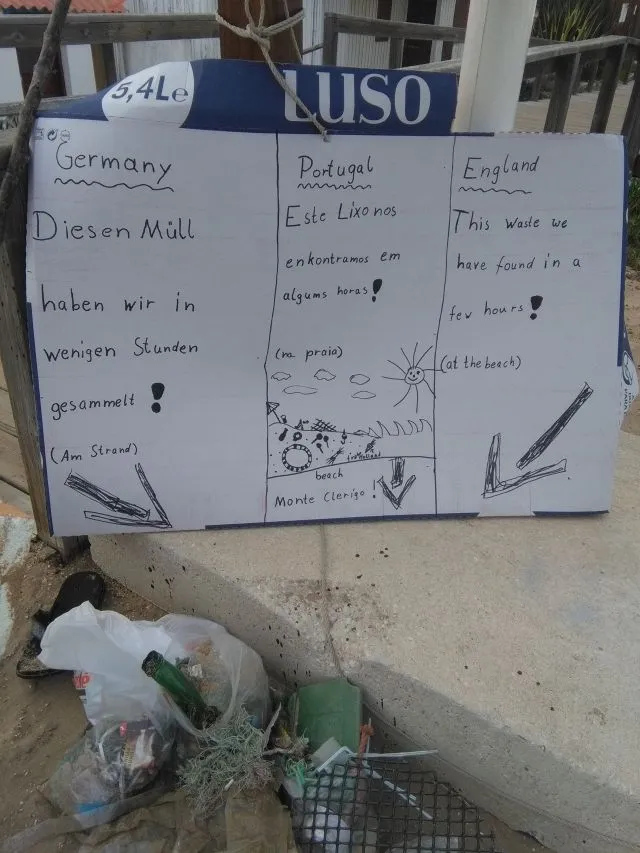 5,4Le
LUSO
Germany
Diesen Müll
haben wir in
wenigen Stunden
gesammelt !
(Am Strand)
Portugal
Este Lixo nos
enkontramos em
algums horas!
(na praia)
beach
Monte Clerigo!
England
This waste we
have found in a
few hours!
(at the beach)